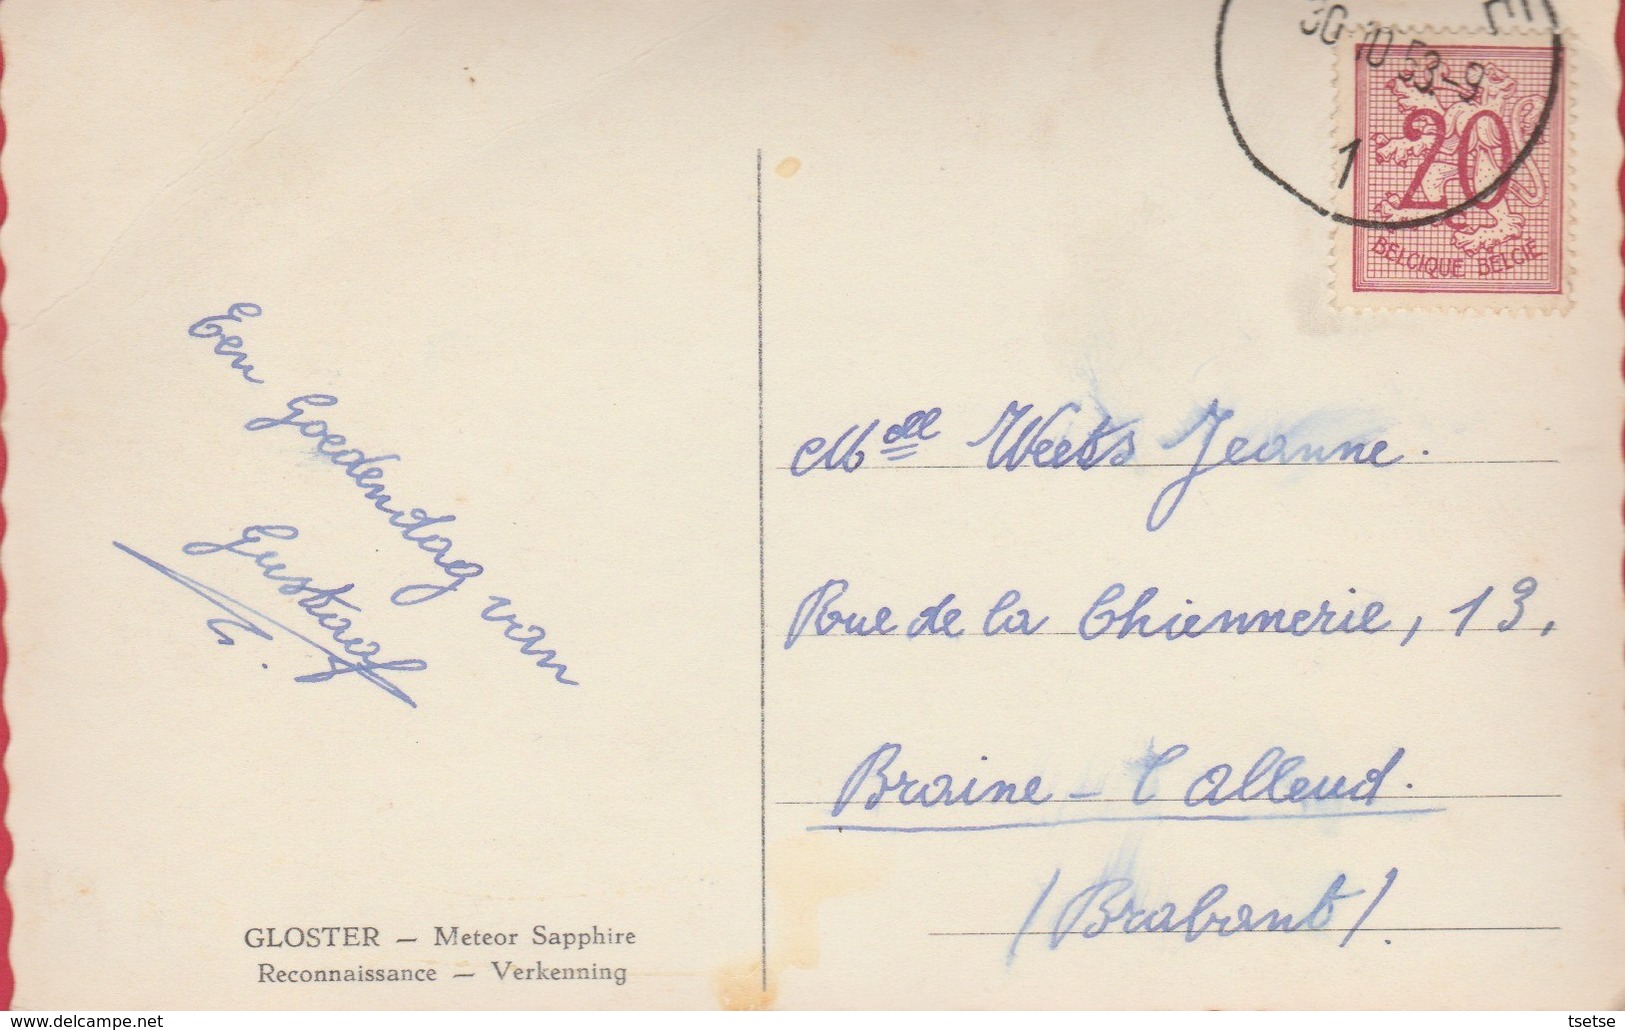 E
30-10 53-9
1
20
BELGIQUE BELGIE
Een Goedendag van
Gustaaf
Mlle Weets Jeanne.
Rue de la Chiennerie, 13,
Braine-l'alleud.
(Brabant).
GLOSTER — Meteor Sapphire
Reconnaissance — Verkenning
delcampe.net
tsetse